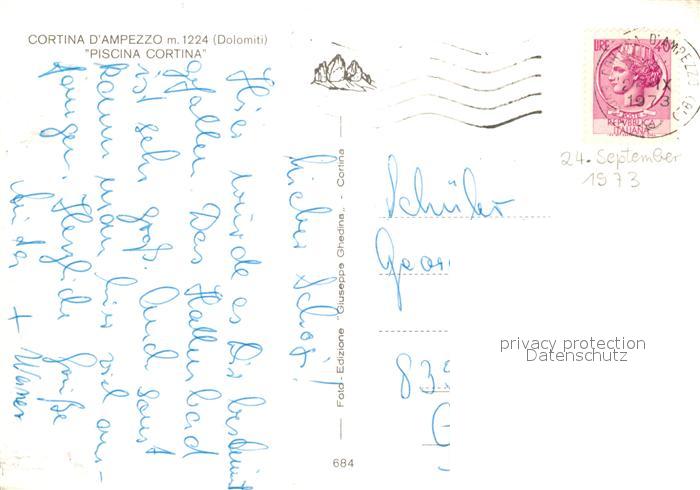 CORTINA D'AMPEZZO m. 1224 (Dolomiti)
"PISCINA CORTINA"
Lieber Schorsch!
Hier würde es Dir bestimmt
gefallen. Das Hallenbad
ist sehr groß. Auch sonst
kann man hier viel an-
fangen. Herzliche Grüße
+ Werner
Foto - Edizione "Giuseppe Ghedina" - Cortina
684
LIRE 40
POSTE
REPVBBLICA
ITALIANA
D'AMPEZZO
IX
1973
24. September
1973
Schüler
Geor
83
privacy protection
Datenschutz